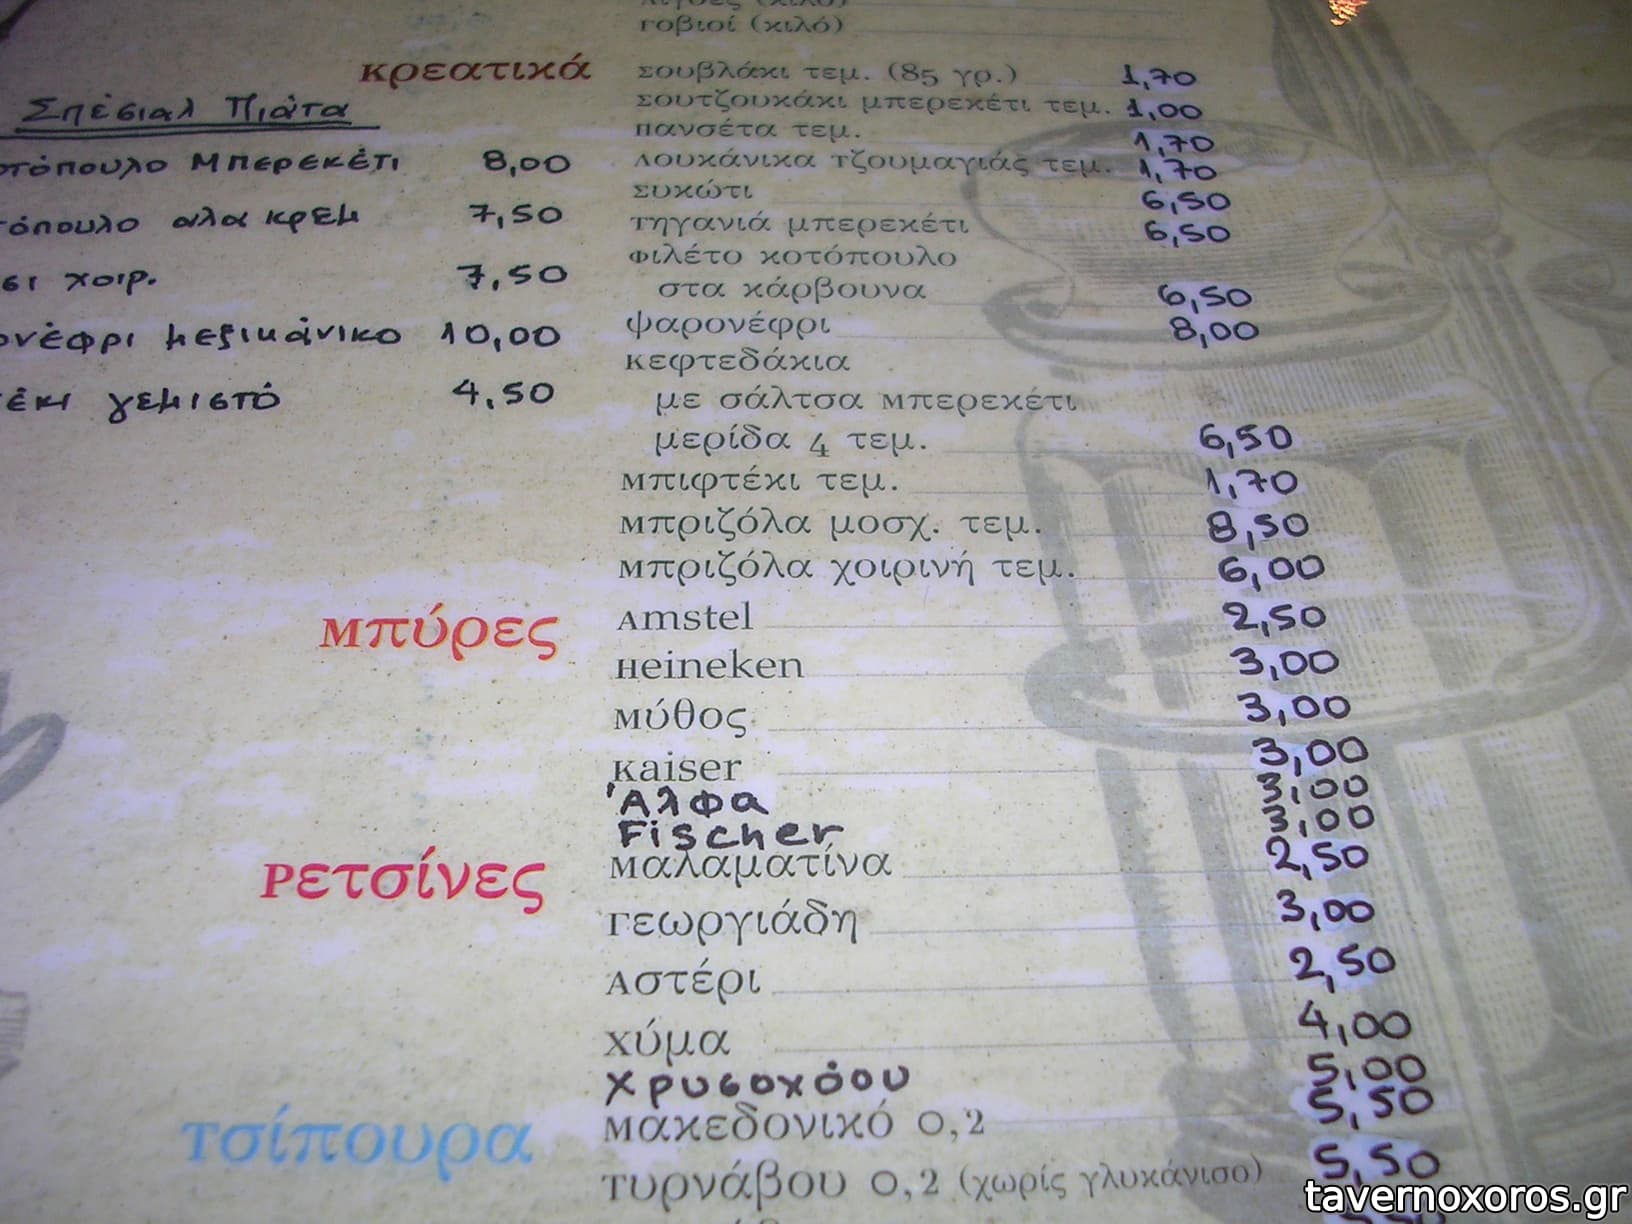 γοβιοί (κιλό)
κρεατικά
σουβλάκι τεμ. (85 γρ.) 1,70
σουτζουκάκι μπερεκέτι τεμ. 1,00
πανσέτα τεμ. 1,70
λουκάνικα τζουμαγιάς τεμ. 1,70
συκώτι 6,50
τηγανιά μπερεκέτι 6,50
φιλέτο κοτόπουλο
στα κάρβουνα 6,50
ψαρονέφρι 8,00
κεφτεδάκια
με σάλτσα μπερεκέτι
μερίδα 4 τεμ. 6,50
μπιφτέκι τεμ. 1,70
μπριζόλα μοσχ. τεμ. 8,50
μπριζόλα χοιρινή τεμ. 6,00
Σπέσιαλ Πιάτα
οτόπουλο Μπερεκέτι 8,00
τόπουλο αλα κρεμ 7,50
σι χοιρ. 7,50
ονέφρι μεξικάνικο 10,00
τέκι γεμιστό 4,50
μπύρες
Amstel 2,50
Heineken 3,00
μύθος 3,00
Kaiser 3,00
Άλφα 3,00
Fischer 3,00
Ρετσίνες
μαλαματίνα 2,50
γεωργιάδη 3,00
αστέρι 2,50
χύμα 4,00
Χρυσοχόου 5,00
τσίπουρα
μακεδονικό 0,2 5,50
τυρνάβου 0,2 (χωρίς γλυκάνισο) 5,50
tavernoxoros.gr